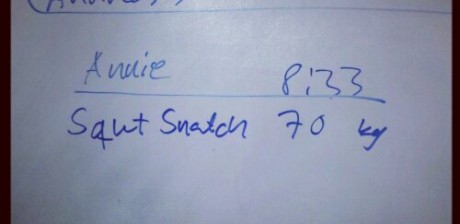 Annie 8:33
Squt Snatch 70 kg